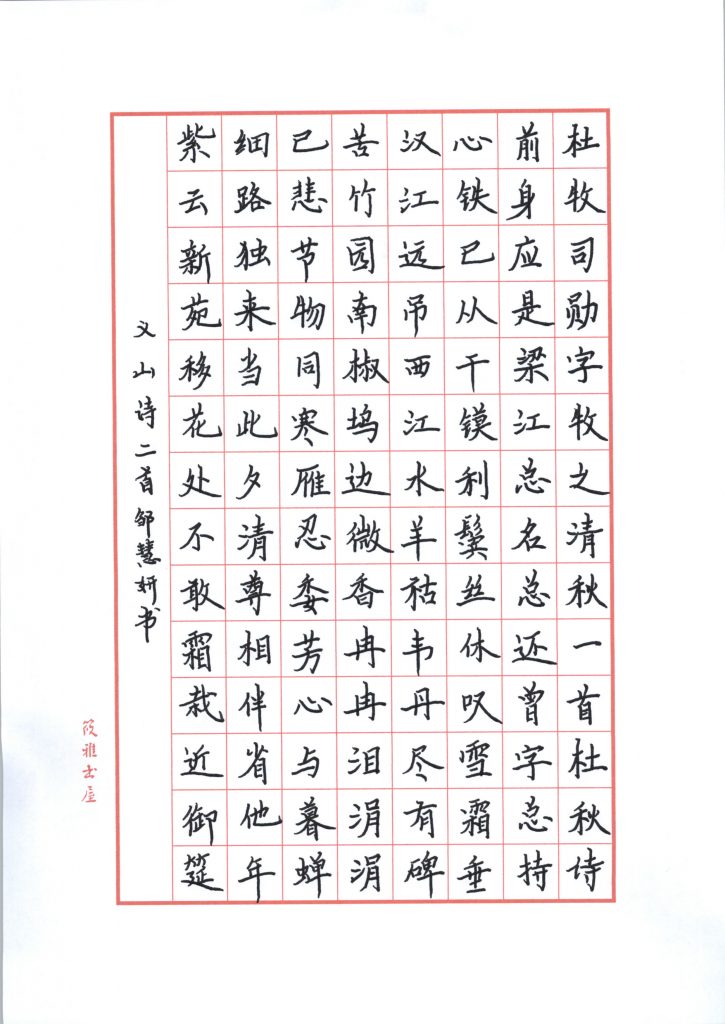 杜牧司勋字牧之清秋一首杜秋诗
前身应是梁江总名总还曾字总持
心铁已从干镆利鬓丝休叹雪霜垂
汉江远吊西江水羊祜韦丹尽有碑
苦竹园南椒坞边微香冉冉泪涓涓
已悲节物同寒雁忍委芳心与暮蝉
细路独来当此夕清尊相伴省他年
紫云新苑移花处不敢霜栽近御筵
义山诗二首邹慧妍书
筱雅书屋